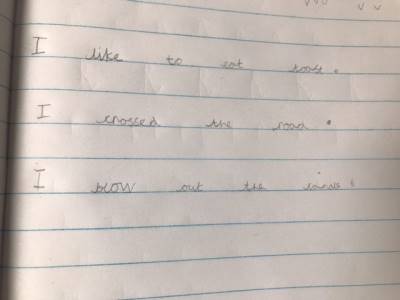 I like to eat toast.
I crossed the road.
I blow out the